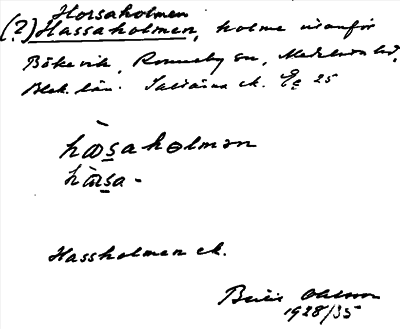 Horsaholmen
(?) Hassaholmen, holme utanför
Bökevik, Ronneby sn, Medelsta hd,
Blek. län. Saltsjöns ek. Ec 25
hɑsahɵlmən
hɑsa-
Hassholmen ek.
Ohlsson
1928/35